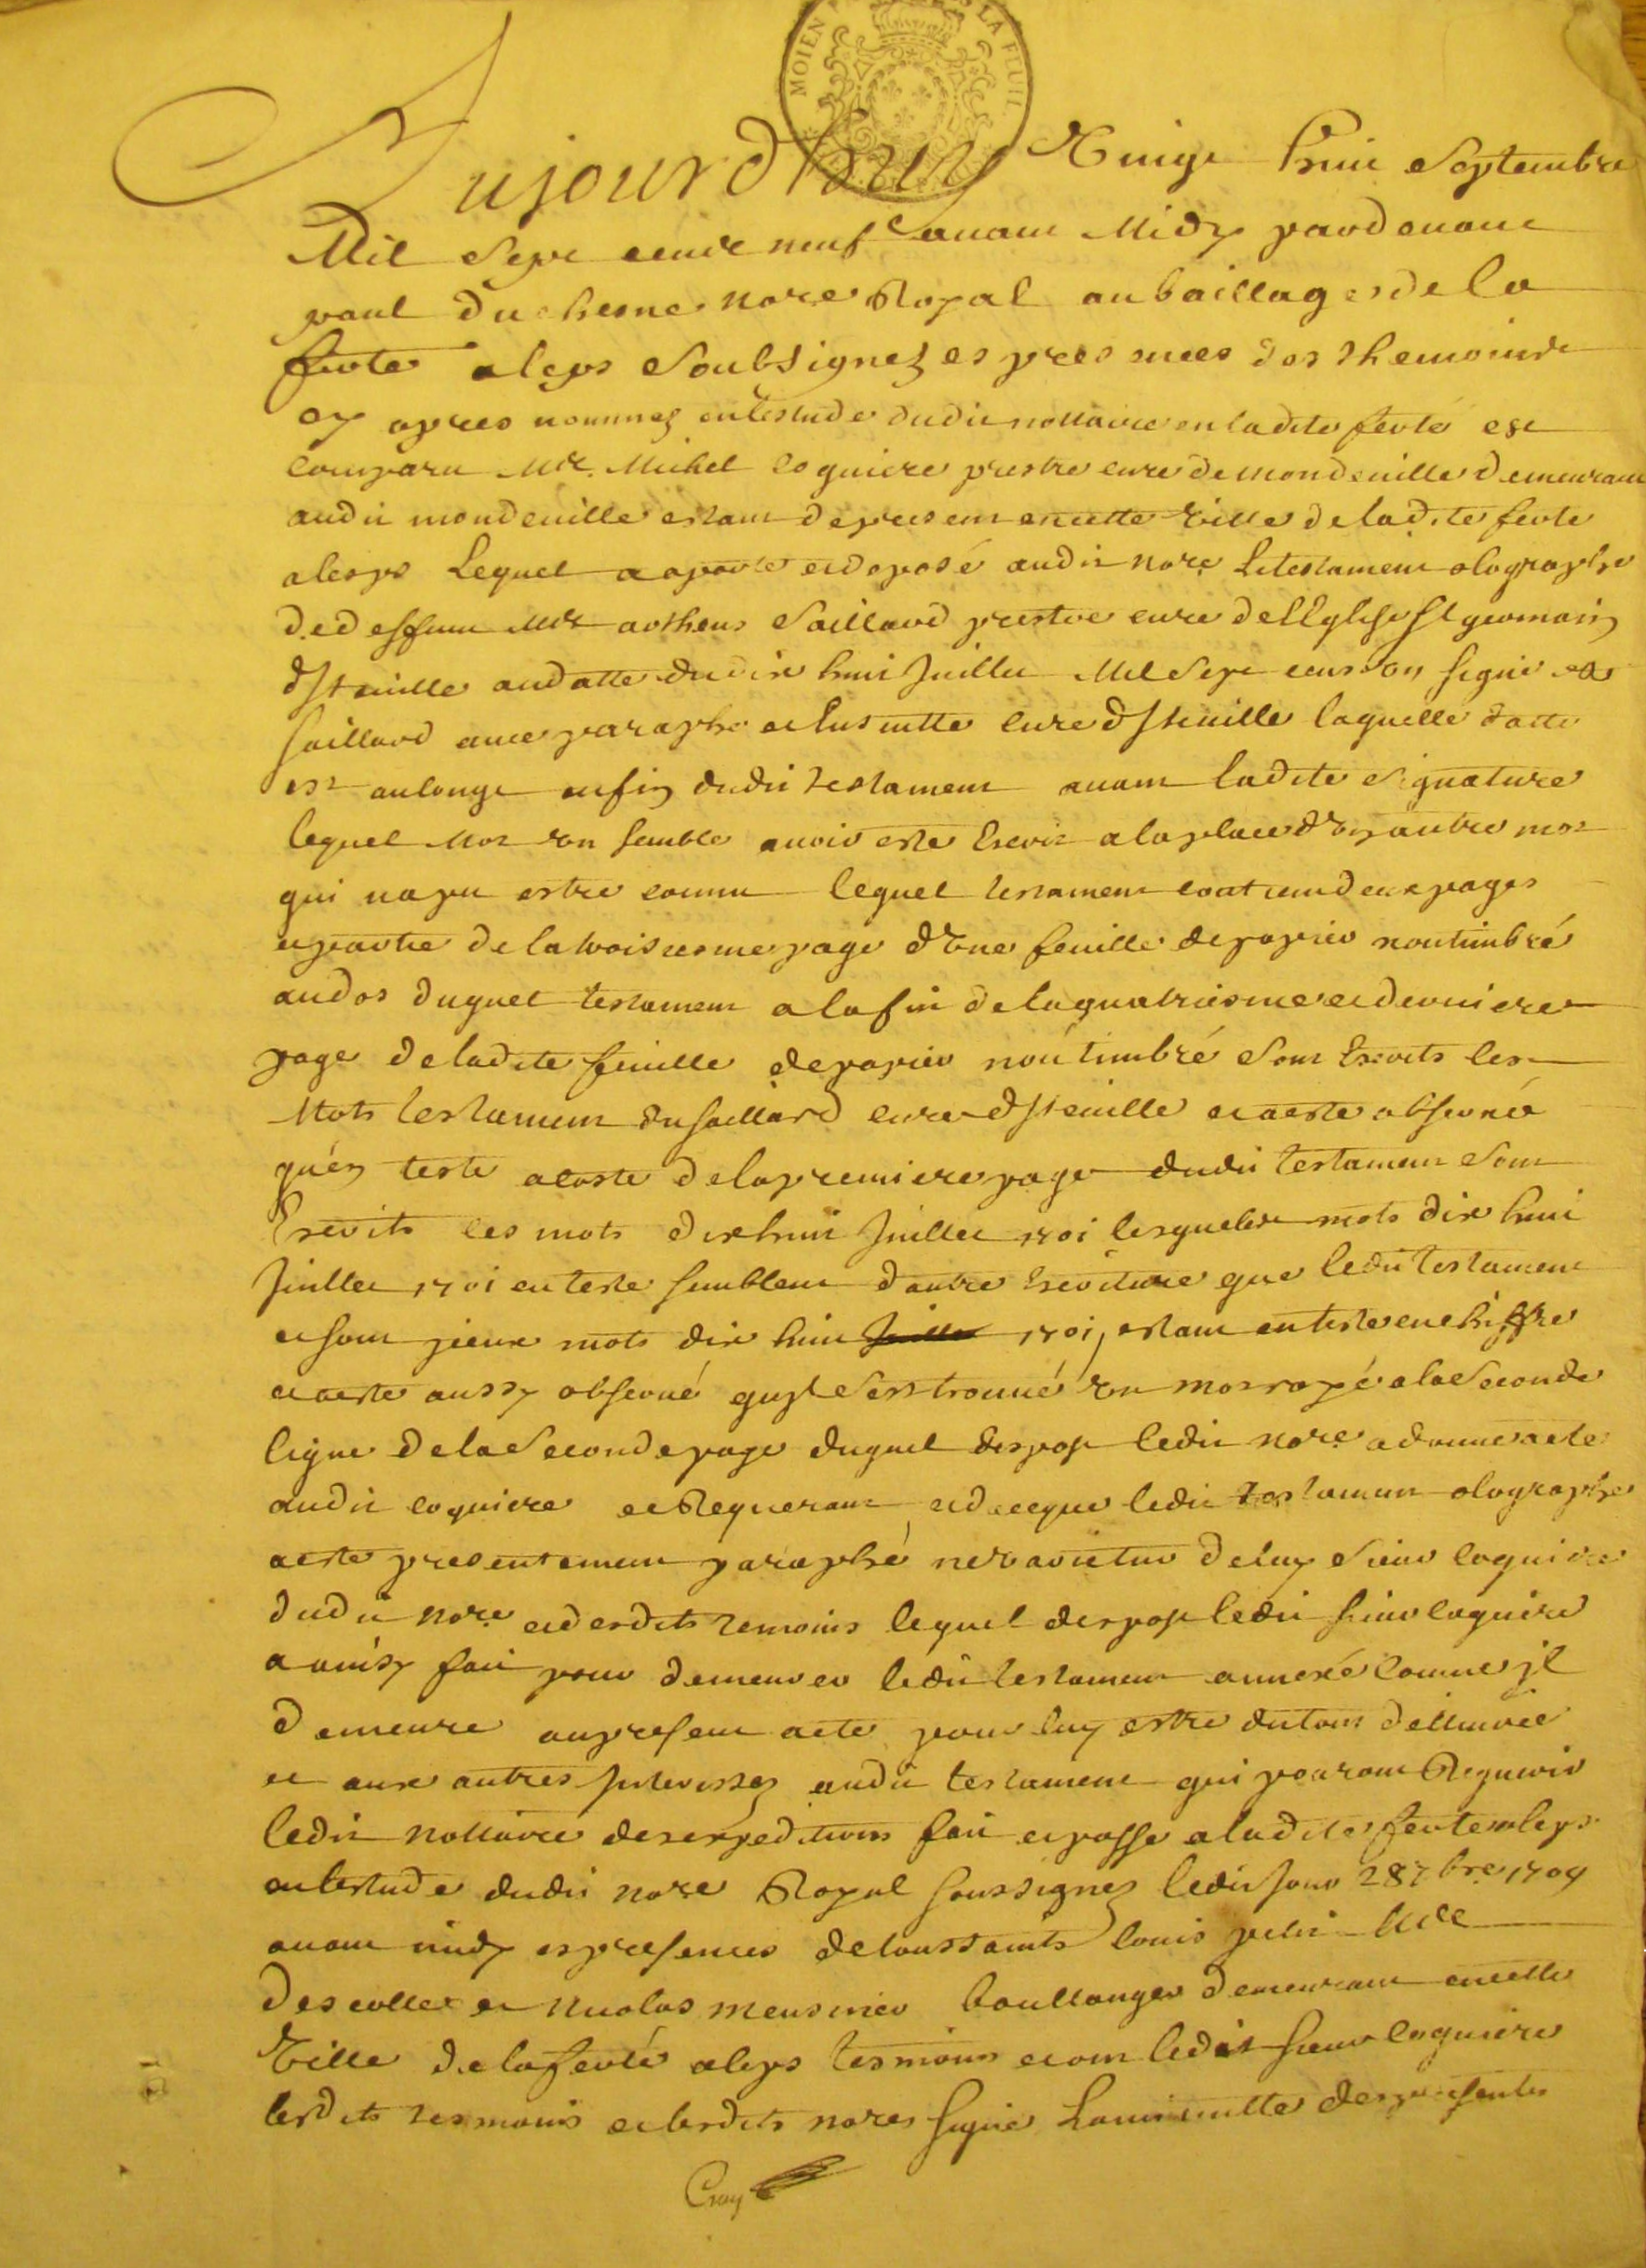 MOIEN LA FEUIL
Aujourdhuy Vingt huit Septembre
Mil Sept cents neuf avant Midy pardevant
paul Duchesne nore Royal au baillage de la
ferte aleps Soubsignez es presences des themoins
cy apres nommez en lestude dudit nottaire en ladite ferté est
comparu Mre Michel coquiere prestre curé de mondeuille demeurant
audit mondeuille estant de present en cette ville de ladite ferte
aleps Lequel a aporté et deposé audit nore Le testament olographe
de deffunt Mre Saillard prestre curé de lEglise St germain
dJteuille audatte du dix huit Juillet Mil Sept cens on signé
Saillard avec paraphe et ensuitte curé dJteuille laquelle datte
est au longt en fin dudit testament avant ladite signature
lequel Mot on semble avoir esté Escrit a la place dvn autre mot
qui na pu estre connu lequel testament contient deux pages
et partie de la troisiesme page dvne feuille de papier non timbré
au dos duquel testament a la fin de la quatriesme et derniere
page de ladite feuille de papier non timbré Sont Escrits les
Mots testament du Saillard curé dJteuille et a esté observé
quen teste a costé de la premiere page dudit testament Sont
Escrits les mots dix huit Juillet 1701 lesquels mots dix huit
Juillet 1701 en teste semblent dautre Escriture que ledit testament
et sont yceux mots dix huit Juillet 1701, estant en teste en chiffre
et a esté aussy observé quyl Sest trouvé vn mot rayé a la Seconde
ligne de la Seconde page duquel depost ledit nore a donné acte
audit coquiere ce Requerant et de ce que ledit testament olographe
a esté presentement paraphé ne varietur de luy Sieur coquiere
dudit nore et desdits temoins lequel depost ledit sieur coquiere
a ainsy fait pour demeurer ledit testament annexé comme jl
demeure au present acte pour luy estre du tout dellivré
et aux autres Jnteressez audit testament qui pouront Requerir
ledit nottaire des expeditions fait et passé a ladite ferte aleps
en lestude dudit nore Royal soussigné ledit jour 28 7bre 1709
avant midy es presences de toussaints louis petit Mre
descolle et nicolas meusnier boullanger demeurant en cette
Ville de la ferté aleps tesmoins et ont ledit sieur coquiere
lesdits tesmoins et lesdits nores signé La minutte des presentes